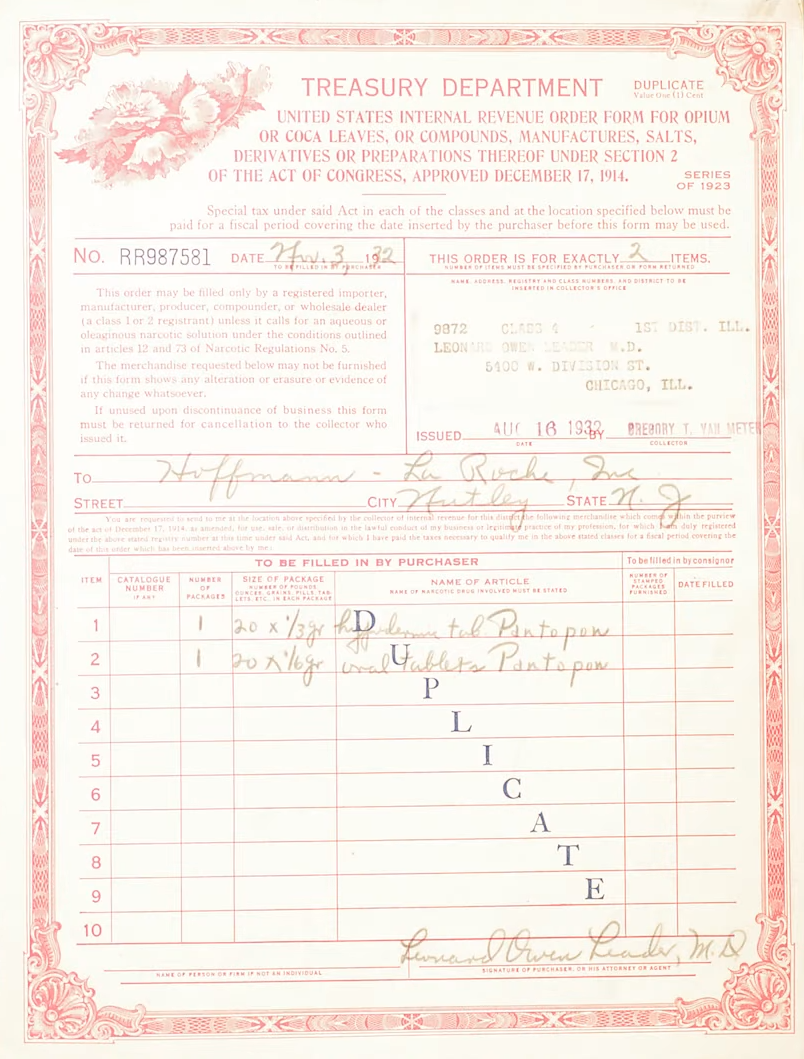 TREASURY DEPARTMENT
DUPLICATE
Value One (1) Cent
UNITED STATES INTERNAL REVENUE ORDER FORM FOR OPIUM
OR COCA LEAVES, OR COMPOUNDS, MANUFACTURES, SALTS,
DERIVATIVES OR PREPARATIONS THEREOF UNDER SECTION 2
OF THE ACT OF CONGRESS, APPROVED DECEMBER 17, 1914.
SERIES
OF 1923
Special tax under said Act in each of the classes and at the location specified below must be
paid for a fiscal period covering the date inserted by the purchaser before this form may be used.
No. RR987581 DATE Nov. 3, 1932
TO BE FILLED IN BY PURCHASER
THIS ORDER IS FOR EXACTLY 2 ITEMS.
NUMBER OF ITEMS MUST BE SPECIFIED BY PURCHASER OR FORM RETURNED
This order may be filled only by a registered importer,
manufacturer, producer, compounder, or wholesale dealer
(a class 1 or 2 registrant) unless it calls for an aqueous or
oleaginous narcotic solution under the conditions outlined
in articles 12 and 73 of Narcotic Regulations No. 5.
The merchandise requested below may not be furnished
if this form shows any alteration or erasure or evidence of
any change whatsoever.
If unused upon discontinuance of business this form
must be returned for cancellation to the collector who
issued it.
NAME, ADDRESS, REGISTRY AND CLASS NUMBERS, AND DISTRICT TO BE
INSERTED IN COLLECTOR'S OFFICE
9872 CLASS 4 1ST DIST. ILL.
LEONARD OWEN LEADER M.D.
5400 W. DIVISION ST.
CHICAGO, ILL.
ISSUED AUG 16 1932 BY GREGORY T. VAN METER
DATE COLLECTOR
TO Hoffmann - La Roche, Inc
STREET CITY Nutley STATE N. J
You are requested to send to me at the location above specified by the collector of internal revenue for this district the following merchandise which comes within the purview
of the act of December 17, 1914, as amended, for use, sale, or distribution in the lawful conduct of my business or legitimate practice of my profession, for which I am duly registered
under the above stated register number at this time under said Act, and for which I have paid the taxes necessary to qualify me in the above stated classes for a fiscal period covering the
date of this order which has been inserted above by me:
TO BE FILLED IN BY PURCHASER
To be filled in by consignor
ITEM
CATALOGUE
NUMBER
IF ANY
NUMBER
OF
PACKAGES
SIZE OF PACKAGE
NUMBER OF POUNDS,
OUNCES, GRAINS, PILLS, TAB-
LETS, ETC., IN EACH PACKAGE
NAME OF ARTICLE
NAME OF NARCOTIC DRUG INVOLVED MUST BE STATED
NUMBER OF
STAMPED
PACKAGES
FURNISHED
DATE FILLED
1 1 20 x 1/3 gr hypodermic tab. Pantopon
2 1 20 x 1/6 gr oral tablets Pantopon
3
4
5
6
7
8
9
10
DUPLICATE
Leonard Owen Leader, M.D
NAME OF PERSON OR FIRM IF NOT AN INDIVIDUAL
SIGNATURE OF PURCHASER, OR HIS ATTORNEY OR AGENT